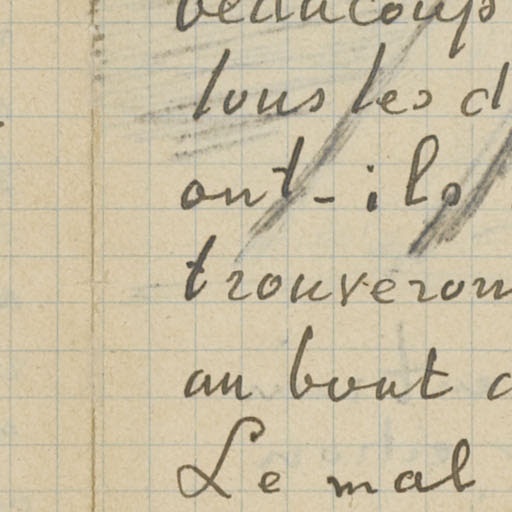 beaucoup
tous les d
ont-ils
trouveron
au bout d
Le mal